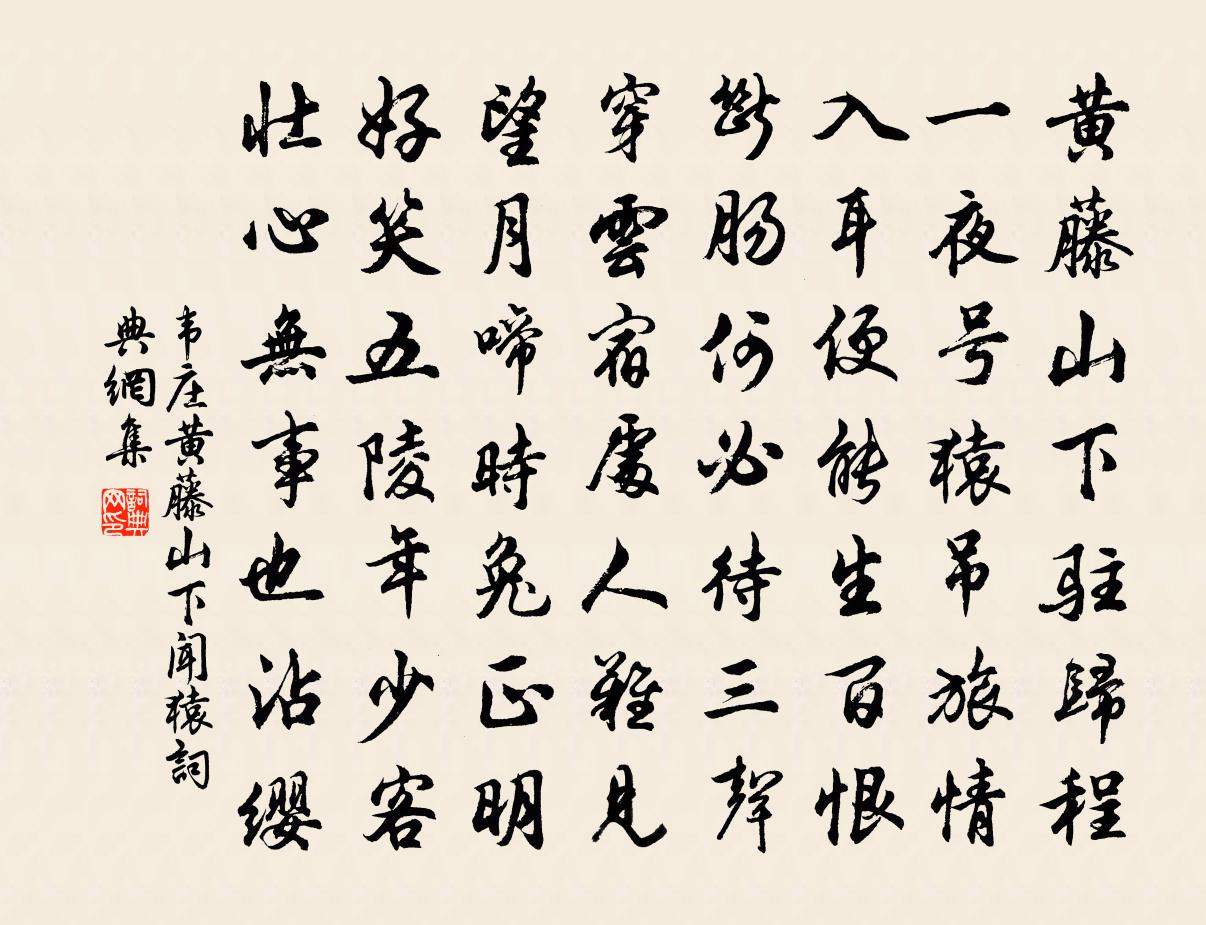 黄藤山下駐歸程
一夜号猿吊旅情
入耳便能生百恨
斷腸何必待三聲
穿雲宿處人難見
望月啼時兔正明
好笑五陵年少客
壯心無事也沾纓
韦庄黄藤山下闻猿詞
典網集
詞典网印